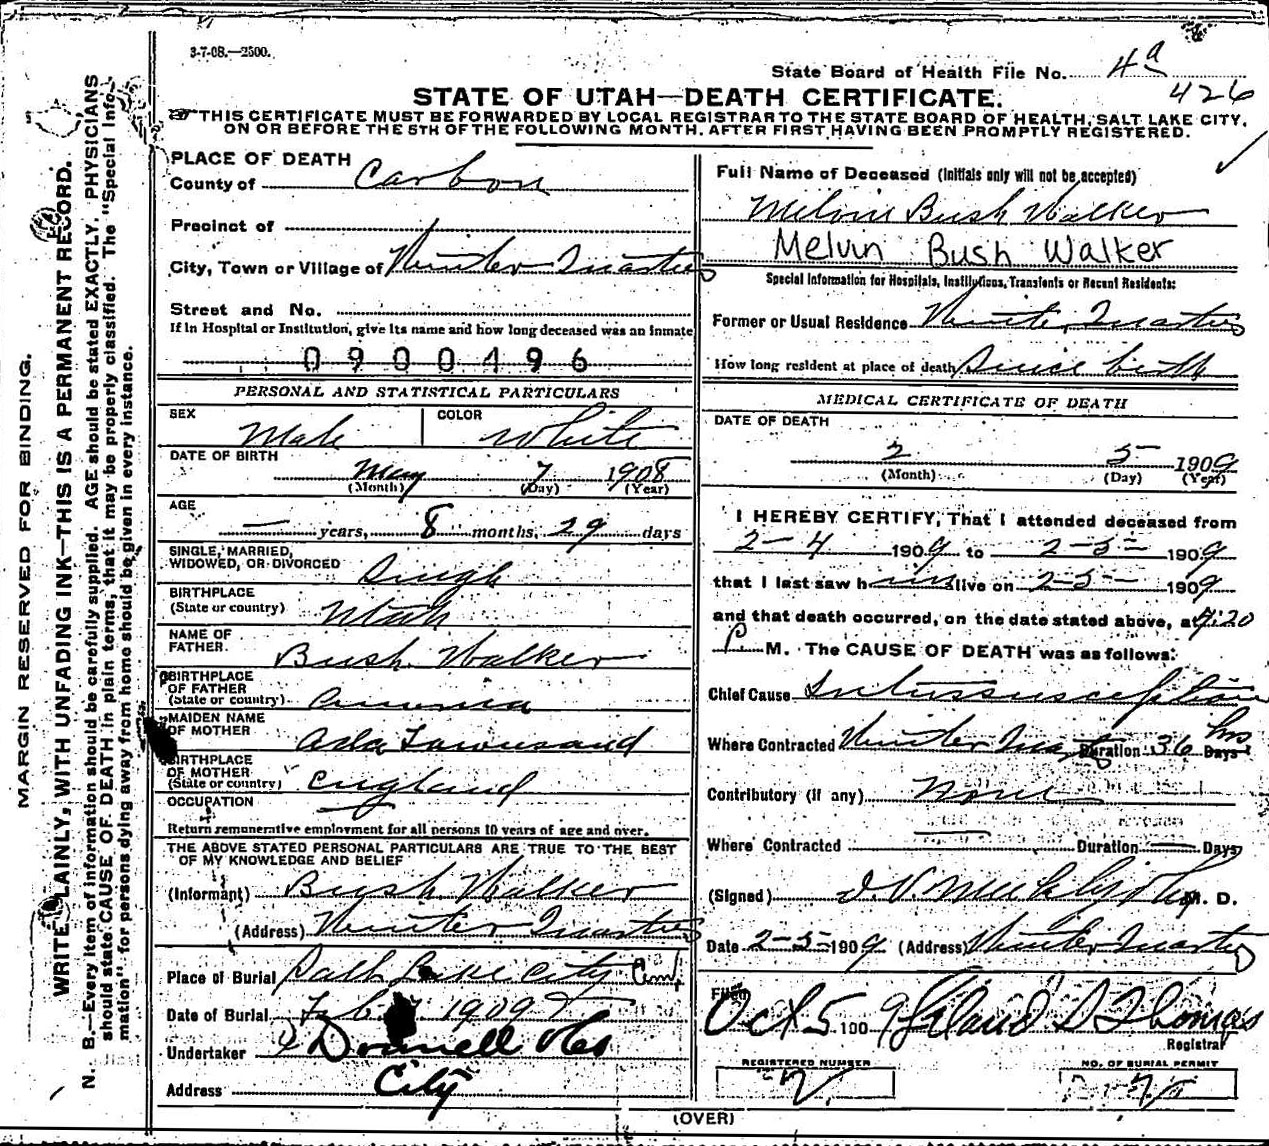 3-7-08.—2500.
State Board of Health File No. 4a
426
STATE OF UTAH—DEATH CERTIFICATE.
THIS CERTIFICATE MUST BE FORWARDED BY LOCAL REGISTRAR TO THE STATE BOARD OF HEALTH, SALT LAKE CITY,
ON OR BEFORE THE 5TH OF THE FOLLOWING MONTH, AFTER FIRST HAVING BEEN PROMPTLY REGISTERED.
MARGIN RESERVED FOR BINDING.
WRITE PLAINLY, WITH UNFADING INK—THIS IS A PERMANENT RECORD.
N. B.—Every item of information should be carefully supplied. AGE should be stated EXACTLY. PHYSICIANS
should state CAUSE OF DEATH in plain terms, that it may be properly classified. The "Special Infor-
mation" for persons dying away from home should be given in every instance.
PLACE OF DEATH
County of Carbon
Precinct of
City, Town or Village of Winter Quarters
Street and No.
If in Hospital or Institution, give its name and how long deceased was an inmate
0900496
PERSONAL AND STATISTICAL PARTICULARS
SEX Male COLOR White
DATE OF BIRTH
May 7 1908
(Month) (Day) (Year)
AGE
— years, 8 months, 29 days
SINGLE, MARRIED,
WIDOWED, OR DIVORCED Single
BIRTHPLACE
(State or country) Utah
NAME OF
FATHER Bush Walker
BIRTHPLACE
OF FATHER
(State or country) America
MAIDEN NAME
OF MOTHER Ada Townsand
BIRTHPLACE
OF MOTHER
(State or country) England
OCCUPATION
Return remunerative employment for all persons 10 years of age and over.
THE ABOVE STATED PERSONAL PARTICULARS ARE TRUE TO THE BEST
OF MY KNOWLEDGE AND BELIEF
(Informant) Bush Walker
(Address) Winter Quarters
Place of Burial Salt Lake City Cem.
Date of Burial Feb 7 1909
Undertaker O'Donnell &Co
Address City
Full Name of Deceased (Initials only will not be accepted)
Melvin Bush Walker
Melvin Bush Walker
Special Information for Hospitals, Institutions, Transients or Recent Residents:
Former or Usual Residence Winter Quarters
How long resident at place of death Since birth
MEDICAL CERTIFICATE OF DEATH
DATE OF DEATH
2 5 1909
(Month) (Day) (Year)
I HEREBY CERTIFY, That I attended deceased from
2-4 1909 to 2-5- 1909
that I last saw him alive on 2-5- 1909
and that death occurred, on the date stated above, at :20
P. M. The CAUSE OF DEATH was as follows:
Chief Cause Intussusception
Where Contracted Winter Quarters Duration 36 hrs Days
Contributory (if any) None
Where Contracted Duration — Days
(Signed) M. D.
Date 2-5-1909 (Address) Winter Quarters
Filed
Oct 5 190 9 S Thomas
Registrar
REGISTERED NUMBER
NO. OF BURIAL PERMIT
(OVER)